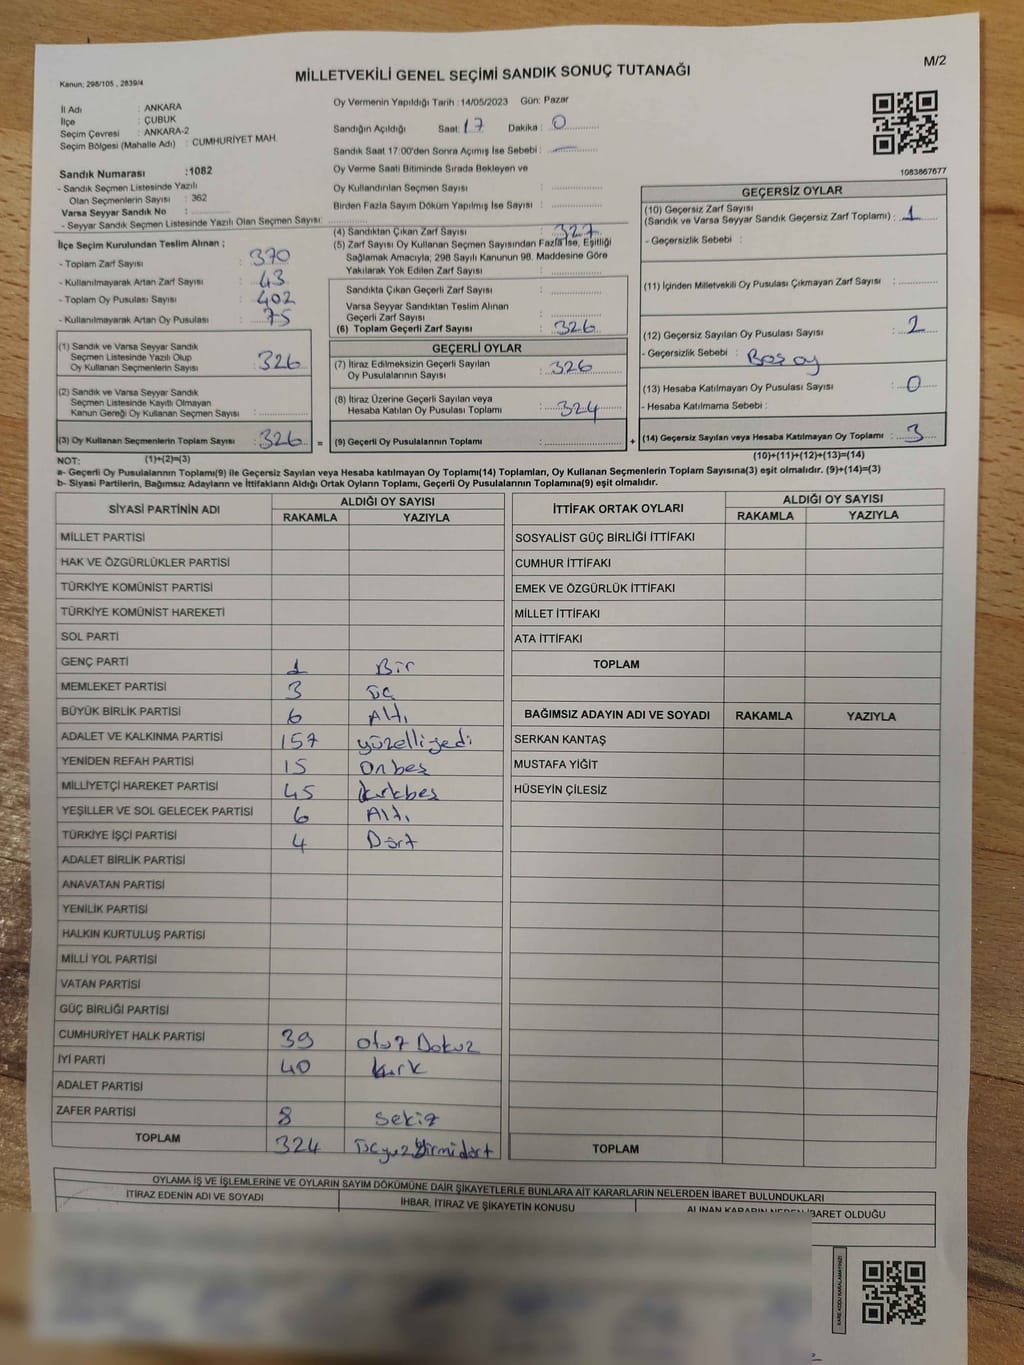 M/2
MİLLETVEKİLİ GENEL SEÇİMİ SANDIK SONUÇ TUTANAĞI
Kanun: 298/105 , 2839/4
İl Adı : ANKARA
İlçe : ÇUBUK
Seçim Çevresi : ANKARA-2
Seçim Bölgesi (Mahalle Adı) : CUMHURİYET MAH.
Sandık Numarası :1082
- Sandık Seçmen Listesinde Yazılı
Olan Seçmenlerin Sayısı : 362
Varsa Seyyar Sandık No :
- Seyyar Sandık Seçmen Listesinde Yazılı Olan Seçmen Sayısı:
İlçe Seçim Kurulundan Teslim Alınan ;
- Toplam Zarf Sayısı : 370
- Kullanılmayarak Artan Zarf Sayısı : 43
- Toplam Oy Pusulası Sayısı : 402
- Kullanılmayarak Artan Oy Pusulası : 75
(1) Sandık ve Varsa Seyyar Sandık
Seçmen Listesinde Yazılı Olup
Oy Kullanan Seçmenlerin Sayısı : 326
(2) Sandık ve Varsa Seyyar Sandık
Seçmen Listesinde Kayıtlı Olmayan
Kanun Gereği Oy Kullanan Seçmen Sayısı :
(3) Oy Kullanan Seçmenlerin Toplam Sayısı : 326 =
(1)+(2)=(3)
Oy Vermenin Yapıldığı Tarih :14/05/2023 Gün: Pazar
Sandığın Açıldığı Saat: 17 Dakika : 0
Sandık Saat 17:00'den Sonra Açımış İse Sebebi : —
Oy Verme Saati Bitiminde Sırada Bekleyen ve
Oy Kullandırılan Seçmen Sayısı :
Birden Fazla Sayım Döküm Yapılmış İse Sayısı :
(4) Sandıktan Çıkan Zarf Sayısı : 327
(5) Zarf Sayısı Oy Kullanan Seçmen Sayısından Fazla İse, Eşitliği
Sağlamak Amacıyla; 298 Sayılı Kanunun 98. Maddesine Göre
Yakılarak Yok Edilen Zarf Sayısı :
Sandıkta Çıkan Geçerli Zarf Sayısı :
Varsa Seyyar Sandıktan Teslim Alınan
Geçerli Zarf Sayısı :
(6) Toplam Geçerli Zarf Sayısı : 326
GEÇERLİ OYLAR
(7) İtiraz Edilmeksizin Geçerli Sayılan
Oy Pusulalarının Sayısı : 326
(8) İtiraz Üzerine Geçerli Sayılan veya
Hesaba Katılan Oy Pusulası Toplamı : 324
(9) Geçerli Oy Pusulalarının Toplamı : +
1083867677
GEÇERSİZ OYLAR
(10) Geçersiz Zarf Sayısı
(Sandık ve Varsa Seyyar Sandık Geçersiz Zarf Toplamı) : 1
- Geçersizlik Sebebi :
(11) İçinden Milletvekili Oy Pusulası Çıkmayan Zarf Sayısı :
(12) Geçersiz Sayılan Oy Pusulası Sayısı : 2
- Geçersizlik Sebebi : Boş oy
(13) Hesaba Katılmayan Oy Pusulası Sayısı : 0
- Hesaba Katılmama Sebebi :
(14) Geçersiz Sayılan veya Hesaba Katılmayan Oy Toplamı : 3
(10)+(11)+(12)+(13)=(14)
NOT:
a- Geçerli Oy Pusulalarının Toplamı(9) ile Geçersiz Sayılan veya Hesaba katılmayan Oy Toplamı(14) Toplamları, Oy Kullanan Seçmenlerin Toplam Sayısına(3) eşit olmalıdır. (9)+(14)=(3)
b- Siyasi Partilerin, Bağımsız Adayların ve İttifakların Aldığı Ortak Oyların Toplamı, Geçerli Oy Pusulalarının Toplamına(9) eşit olmalıdır.
SİYASİ PARTİNİN ADI ALDIĞI OY SAYISI
RAKAMLA YAZIYLA
MİLLET PARTİSİ
HAK VE ÖZGÜRLÜKLER PARTİSİ
TÜRKİYE KOMÜNİST PARTİSİ
TÜRKİYE KOMÜNİST HAREKETİ
SOL PARTİ
GENÇ PARTİ 1 Bir
MEMLEKET PARTİSİ 3 üç
BÜYÜK BİRLİK PARTİSİ 6 Altı
ADALET VE KALKINMA PARTİSİ 157 yüzelliyedi
YENİDEN REFAH PARTİSİ 15 Onbeş
MİLLİYETÇİ HAREKET PARTİSİ 45 kırkbeş
YEŞİLLER VE SOL GELECEK PARTİSİ 6 Altı
TÜRKİYE İŞÇİ PARTİSİ 4 Dört
ADALET BİRLİK PARTİSİ
ANAVATAN PARTİSİ
YENİLİK PARTİSİ
HALKIN KURTULUŞ PARTİSİ
MİLLİ YOL PARTİSİ
VATAN PARTİSİ
GÜÇ BİRLİĞİ PARTİSİ
CUMHURİYET HALK PARTİSİ 39 otuz Dokuz
İYİ PARTİ 40 kırk
ADALET PARTİSİ
ZAFER PARTİSİ 8 Sekiz
TOPLAM 324 üçyüz Yirmidört
İTTİFAK ORTAK OYLARI ALDIĞI OY SAYISI
RAKAMLA YAZIYLA
SOSYALİST GÜÇ BİRLİĞİ İTTİFAKI
CUMHUR İTTİFAKI
EMEK VE ÖZGÜRLÜK İTTİFAKI
MİLLET İTTİFAKI
ATA İTTİFAKI
TOPLAM
BAĞIMSIZ ADAYIN ADI VE SOYADI RAKAMLA YAZIYLA
SERKAN KANTAŞ
MUSTAFA YİĞİT
HÜSEYİN ÇİLESİZ
TOPLAM
OYLAMA İŞ VE İŞLEMLERİNE VE OYLARIN SAYIM DÖKÜMÜNE DAİR ŞİKAYETLERLE BUNLARA AİT KARARLARIN NELERDEN İBARET BULUNDUKLARI
İTİRAZ EDENİN ADI VE SOYADI İHBAR, İTİRAZ VE ŞİKAYETİN KONUSU ALINAN KARARIN NEDEN İBARET OLDUĞU
KARE KODU KARALAMAYINIZ!